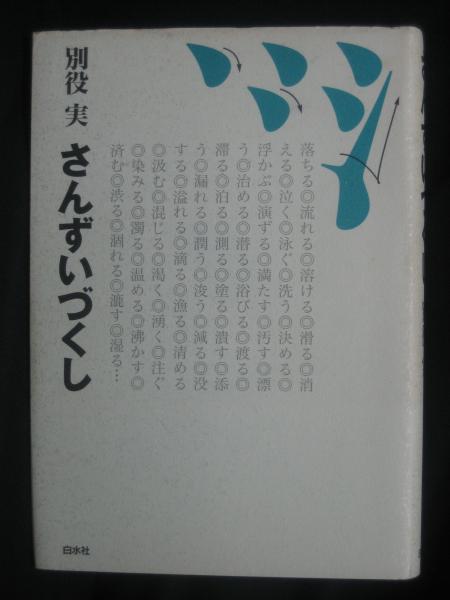 別役 実
さんずいづくし
落ちる◎流れる◎溶ける◎滑る◎消
える◎泣く◎泳ぐ◎洗う◎決める◎
浮かぶ◎演ずる◎満たす◎汚す◎漂
う◎治める◎潜る◎浴びる◎渡る◎
滞る◎泊る◎測る◎塗る◎潰す◎添
う◎漏れる◎潤う◎浚う◎減る◎没
する◎溢れる◎滴る◎漁る◎清める
◎汲む◎混じる◎渇く◎湧く◎注ぐ
◎染みる◎濁る◎温める◎沸かす◎
済む◎渋る◎涸れる◎漉す◎湿る…
白水社